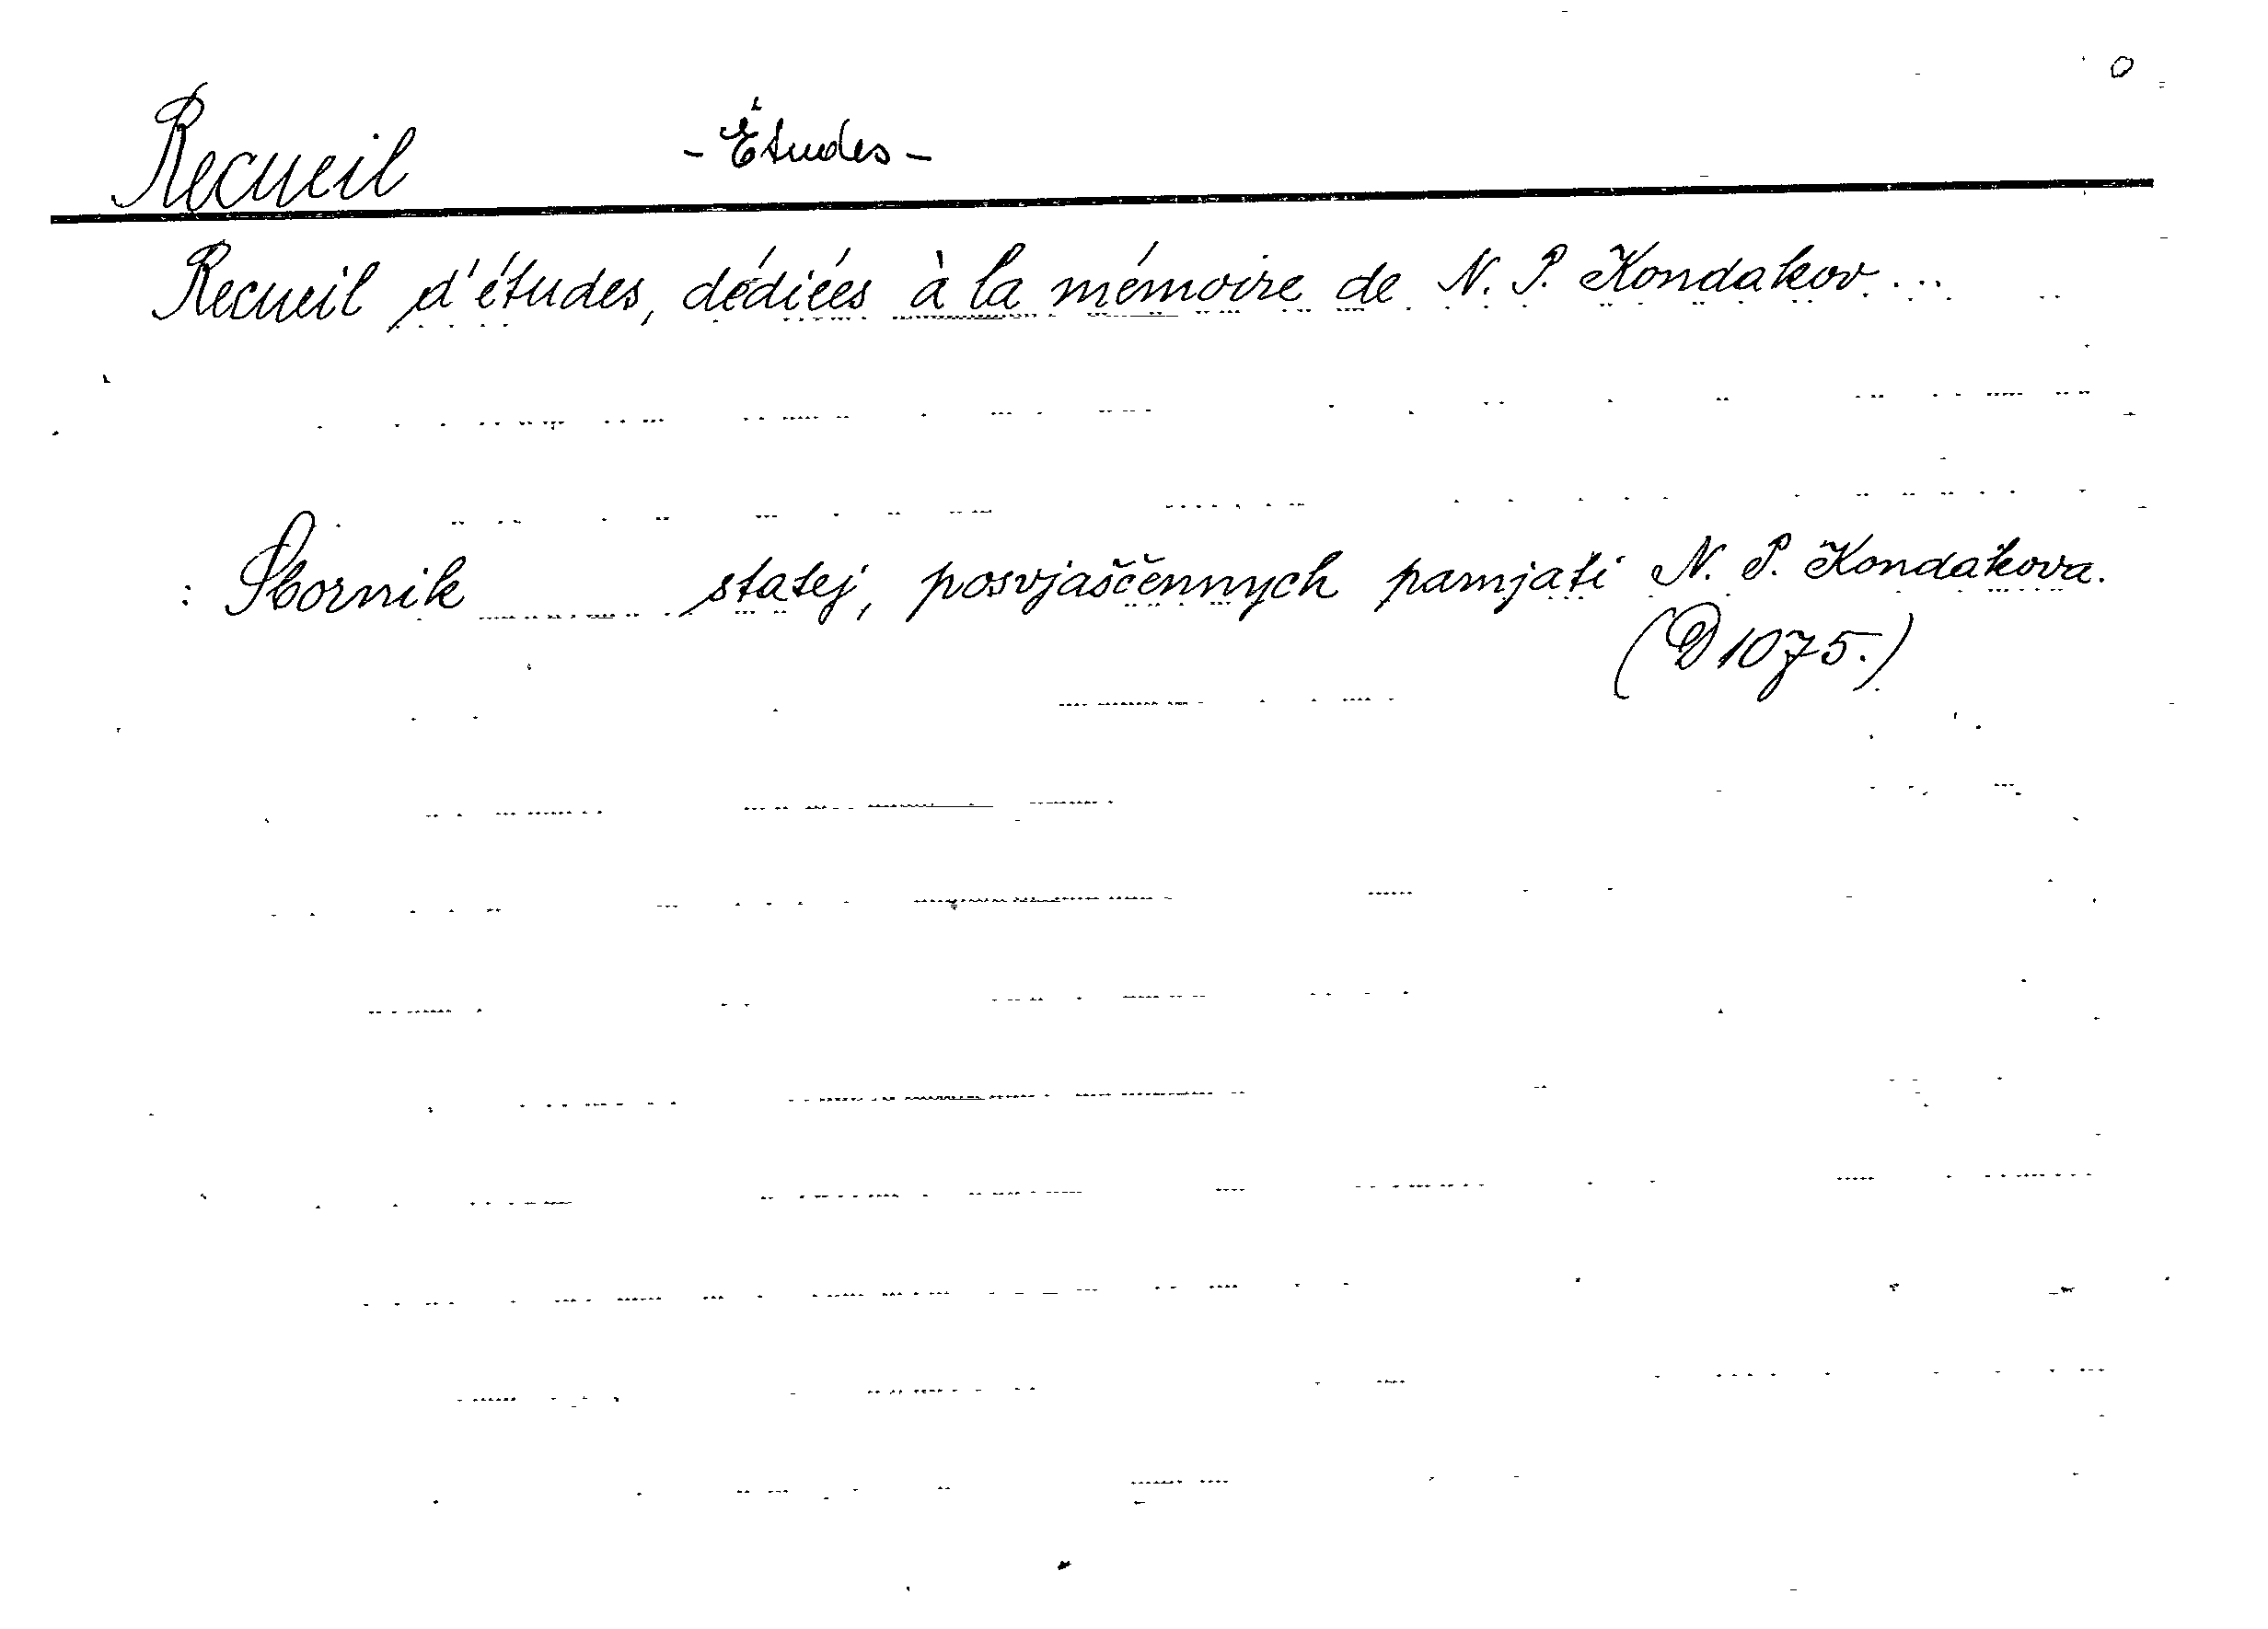 Recueil - Études -
Recueil d'études, dédiées à la mémoire de N. P. Kondakov...
: Sbornik statej, posvjaščennych pamjati N. P. Kondakova.
(D 1075.)